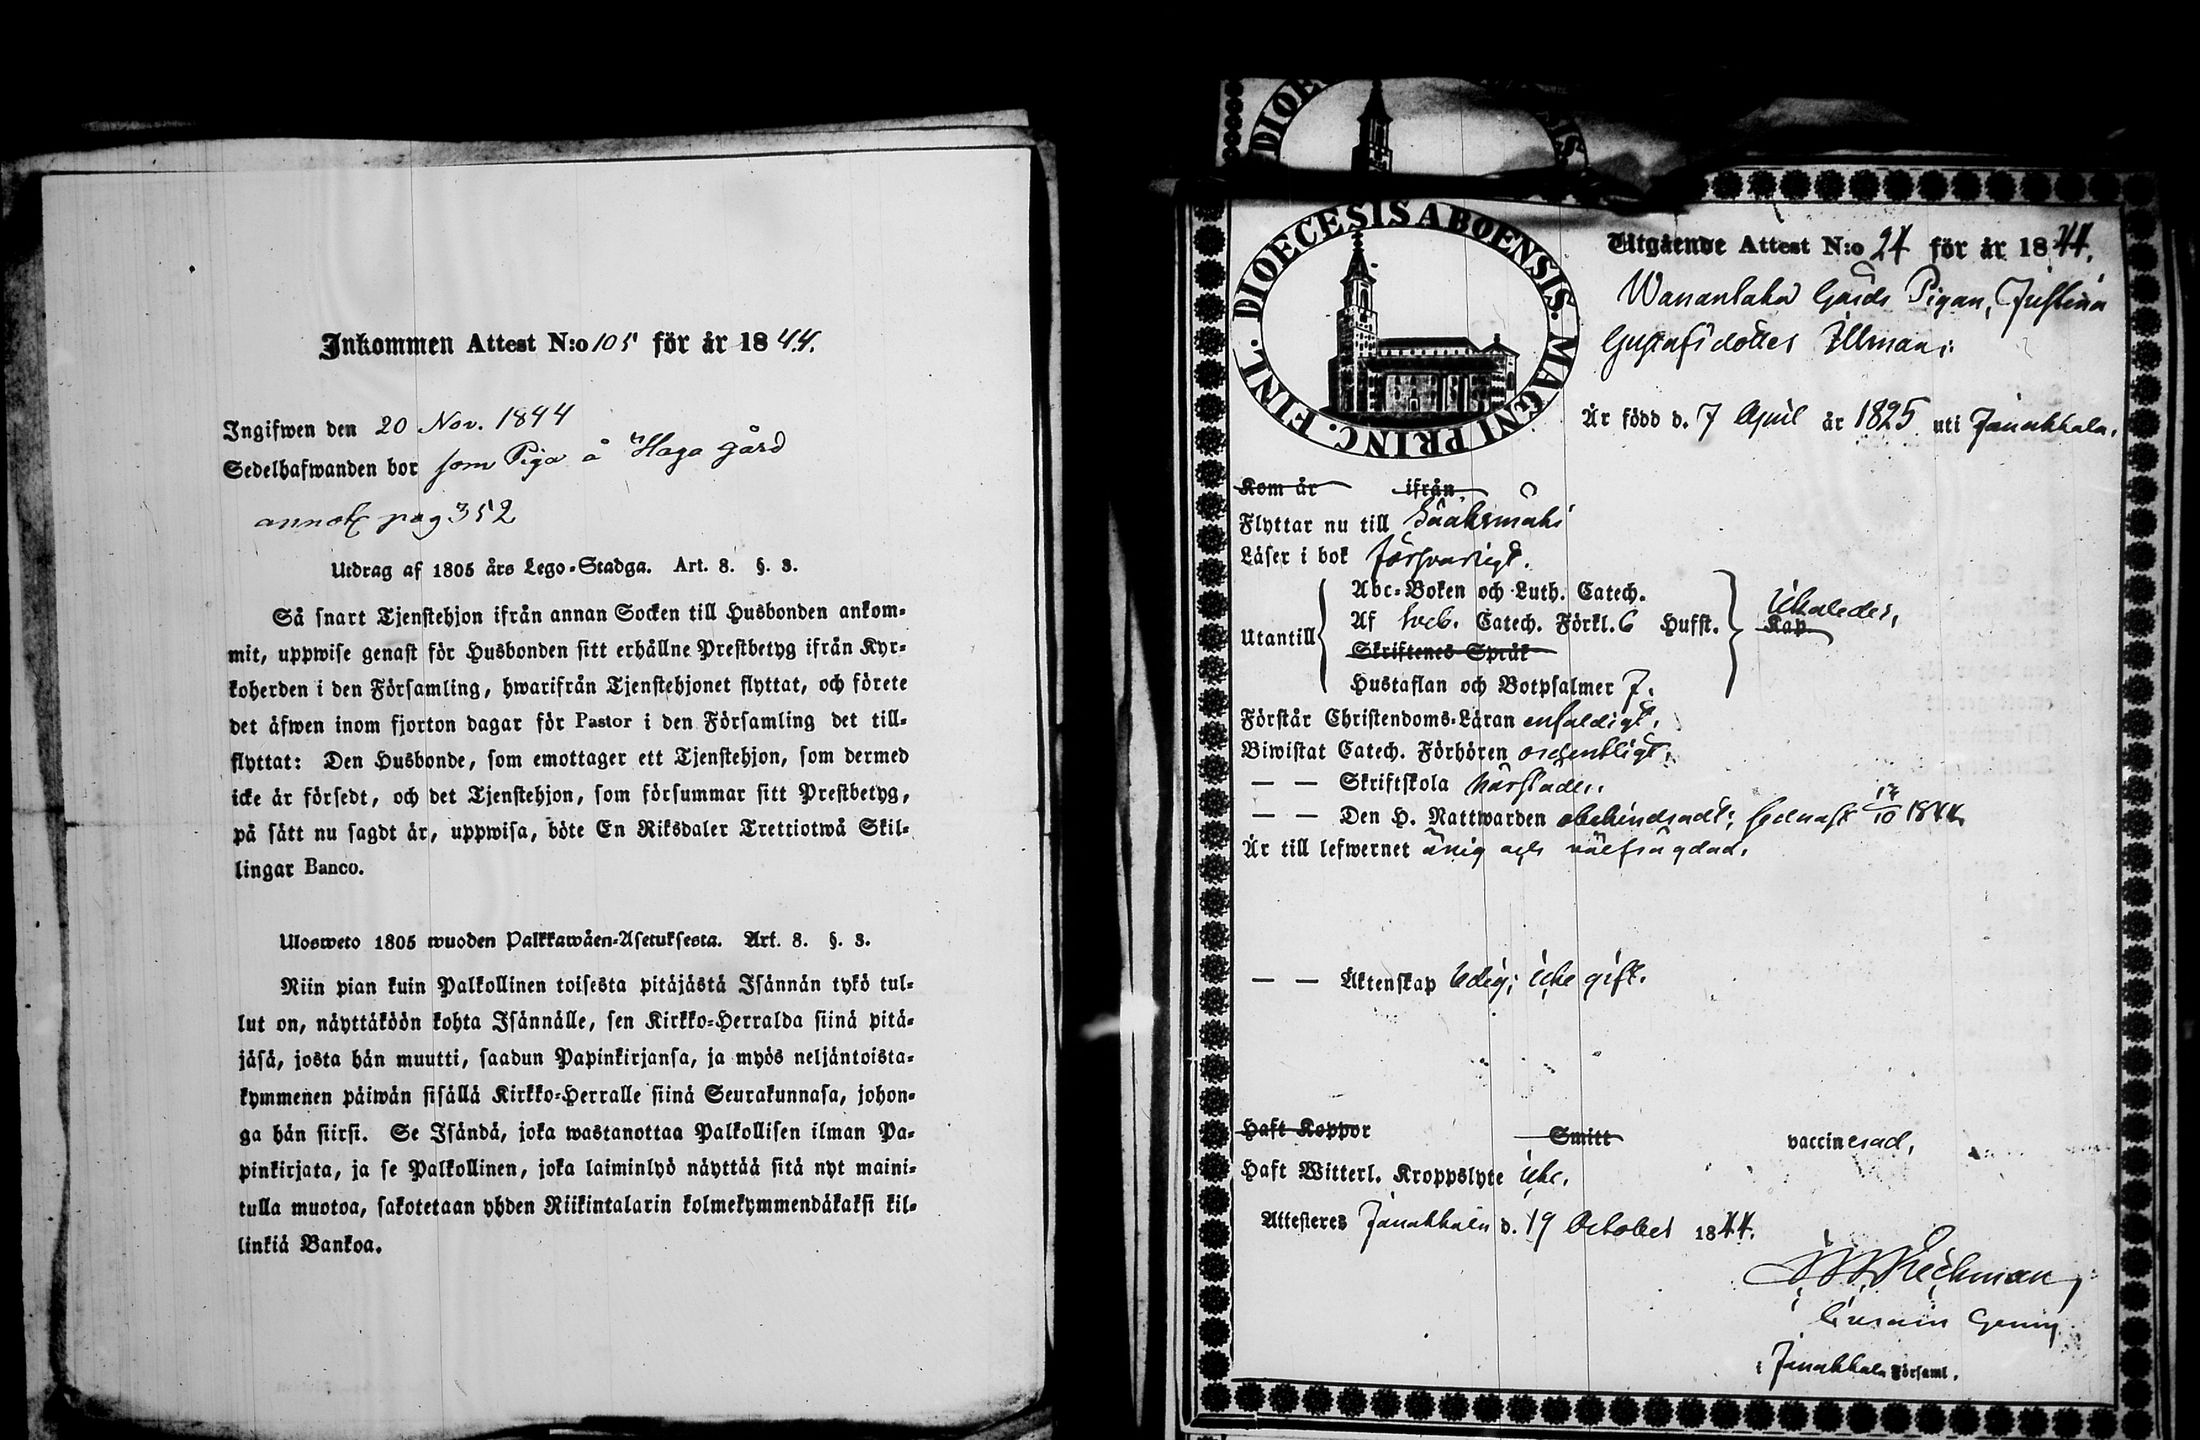 Inkommen Attest N:o 105 för år 1844.
Ingifwen den 20 Nov. 1844
Sedelhafwanden bor som Piga å Haga gård
annot pag 352
Utdrag af 1805 års Lego-Stadga. Art. 8. §. 3.
Så snart Tjenstehjon ifrån annan Socken till Husbonden ankom-
mit, uppwise genast för Husbonden sitt erhållne Prestbetyg ifrån Kyr-
koherden i den Församling, hwarifrån Tjenstehjonet flyttat, och förete
det äfwen inom fjorton dagar för Pastor i den Församling det till-
flyttat: Den Husbonde, som emottager ett Tjenstehjon, som dermed
icke är försedt, och det Tjenstehjon, som försummar sitt Prestbetyg,
på sätt nu sagdt är, uppwisa, böte En Riksdaler Trettiotwå Skil-
lingar Banco.
Ulosweto 1805 wuoden Palkkawäen-Asetuksesta. Art. 8. §. 3.
Niin pian kuin Palkollinen toisesta pitäjästä Isännän tykö tul-
lut on, näyttäköön kohta Isännälle, sen Kirkko-Herralda siinä pitä-
jäsä, josta hän muutti, saadun Papinkirjansa, ja myös neljäntoista-
kymmenen päiwän sisällä Kirkko-Herralle siinä Seurakunnasa, johon-
ga hän siirsi. Se Isändä, joka wastanottaa Palkollisen ilman Pa-
pinkirjata, ja se Palkollinen, joka laiminlyö näyttää sitä nyt maini-
tulla muotoa, sakotetaan yhden Riikintalarin kolmekymmendäkaksi kil-
linkiä Bankoa.
DIOECESIS ABOENSIS. MAGNI PRINC. FINL.
Utgående Attest N:o 94 för år 1844.
Wanantaka Gårds Pigan, Justina
Gustafsdotter Ullman;
Är född d. 7 April år 1825 uti Janakkala.
Kom år ifrån
Flyttar nu till Sääksmäki
Läser i bok försvarligt.
Utantill
Abc-Boken och Luth. Catech.
Af Sveb. Catech. Förkl. 6 Hufst.
Kap
Skriftenes Språk
Hustaflan och Botpsalmer 7.
Förstår Christendoms-Läran enfaldigt.
Biwistat Catech. Förhören ordentligt.
— — Skriftskola
— — Den H. Nattwarden obehindradt; sednast 1844
Är till lefwernet ärlig och välfrägdad.
— — Äktenskap ledig; icke gift.
Haft Koppor Smitt vaccinerad.
Haft Witterl. Kroppslyte icke.
Attesteres Janakkala d. 19 October 1844.
i Janakkala Församl.